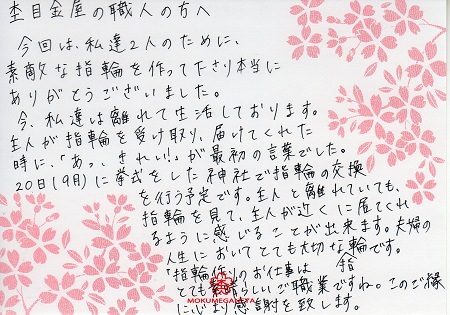 杢目金屋の職人の方へ
今回は、私達2人のために、
素敵な指輪を作って下さり本当に
ありがとうございました。
今、私達は離れて生活しております。
主人が指輪を受け取り、届けてくれた
時に、「あっ、きれい!」が最初の言葉でした。
20日(9月)に挙式をした神社で指輪の交換
を行う予定です。主人と離れていても、
指輪を見て、主人が近くに居てくれ
るように感じることが出来ます。夫婦の
人生においてとても大切な指輪です。
「指輪作りのお仕事は
とても素晴らしいご職業ですね。このご縁
に心より感謝を致します。
MOKUMEGANEYA